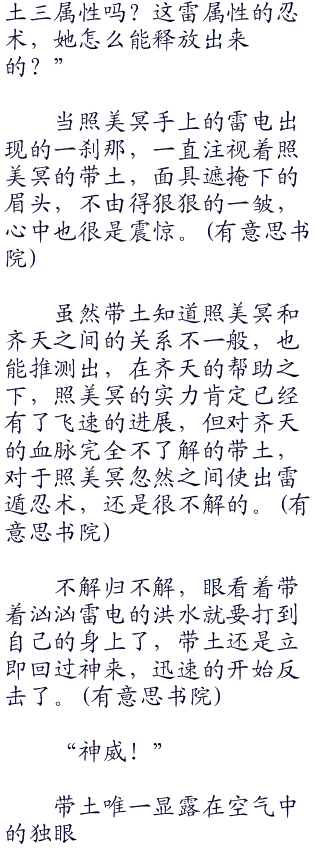 土三属性吗？这雷属性的忍
术，她怎么能释放出来
的？”
当照美冥手上的雷电出
现的一刹那，一直注视着照
美冥的带土，面具遮掩下的
眉头，不由得狠狠的一皱，
心中也很是震惊。(有意思书
院)
虽然带土知道照美冥和
齐天之间的关系不一般，也
能推测出，在齐天的帮助之
下，照美冥的实力肯定已经
有了飞速的进展，但对齐天
的血脉完全不了解的带土，
对于照美冥忽然之间使出雷
遁忍术，还是很不解的。(有
意思书院)
不解归不解，眼看着带
着汹汹雷电的洪水就要打到
自己的身上了，带土还是立
即回过神来，迅速的开始反
击了。(有意思书院)
“神威！”
带土唯一显露在空气中
的独眼